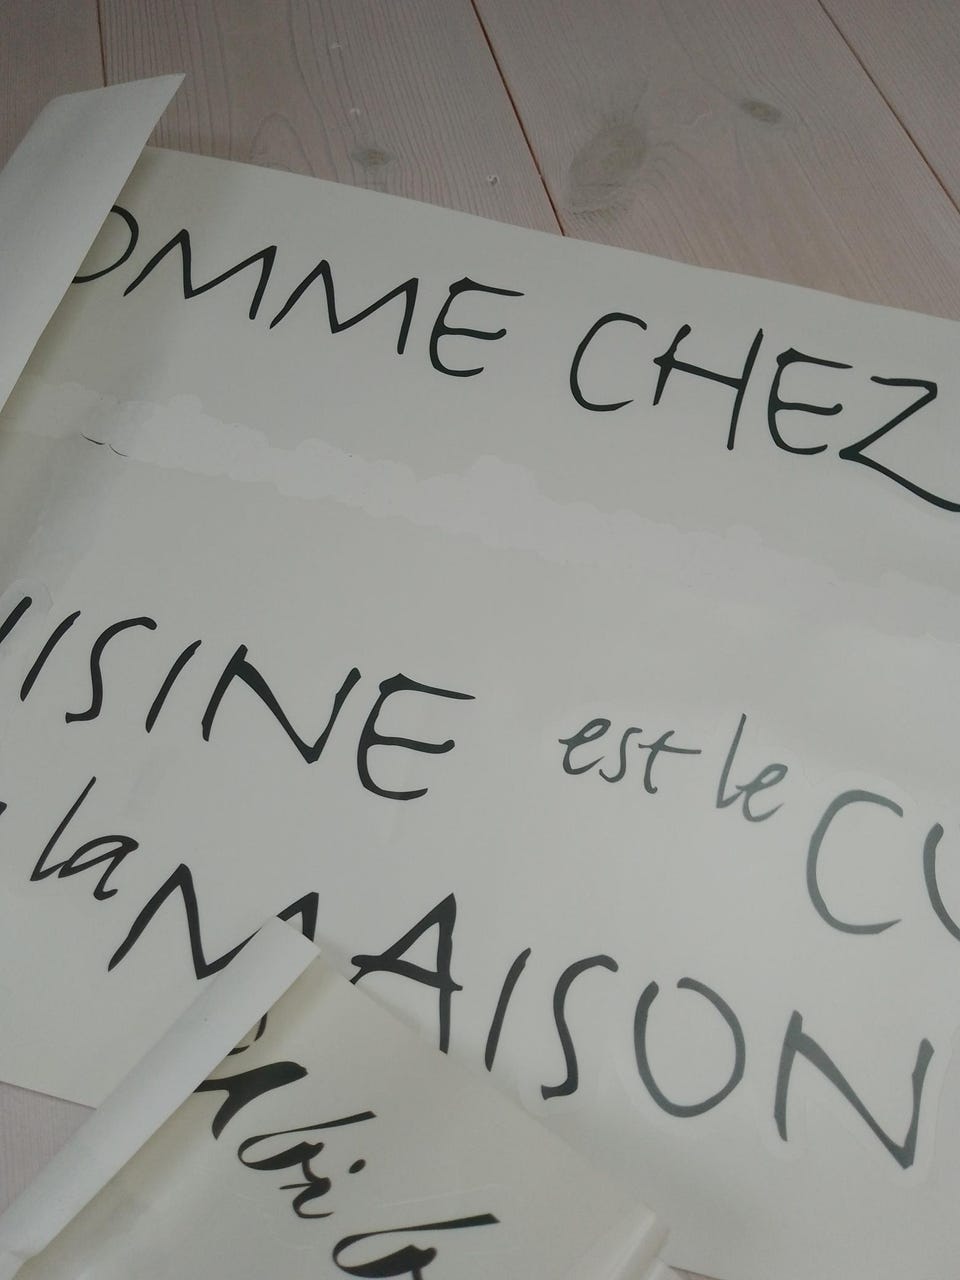 OMME CHEZ
UISINE est le CU
la MAISON